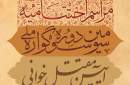 مراسم اختتامیه
سومین دوره سوگواره ملی
آیین مقتل خوانی